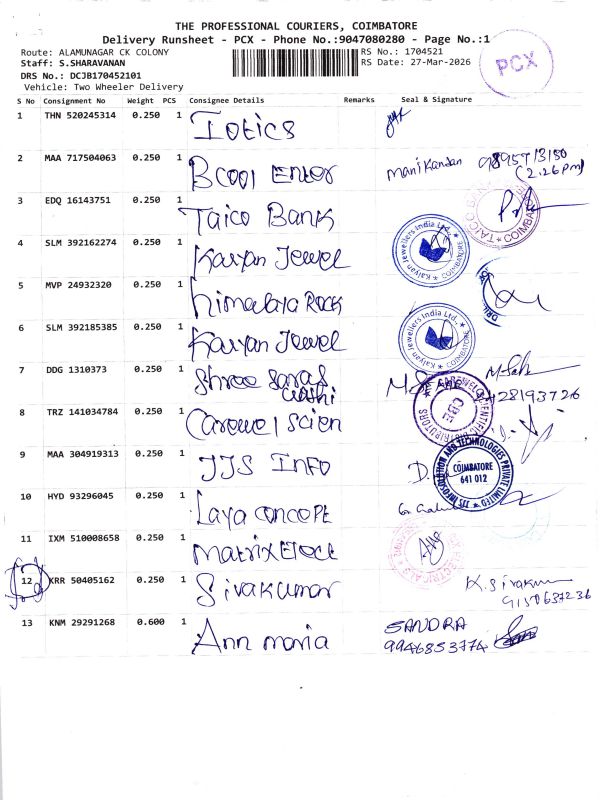 THE PROFESSIONAL COURIERS, COIMBATORE
Delivery Runsheet - PCX - Phone No.:9047080280 - Page No.:1
Route: ALAMUNAGAR CK COLONY
RS No.: 1704521
Staff: S.SHARAVANAN
RS Date: 27-Mar-2026
DRS No.: DCJB170452101
Vehicle: Two Wheeler Delivery
PCX
S No Consignment No Weight PCS Consignee Details Remarks Seal & Signature
1 THN 520245314 0.250 1 Iotics
2 MAA 717504063 0.250 1 Bcool Enter Manikandan
(2.26pm)
3 EDQ 16143751 0.250 1 Taico Bank
TAICO BANK COIMBATORE
4 SLM 392162274 0.250 1 Kalyan Jewel
Kalyan Jewellers India Ltd. COIMBATORE
5 MVP 24932320 0.250 1 Himalaya Rock
6 SLM 392185385 0.250 1 Kalyan Jewel
Kalyan Jewellers India Ltd. COIMBATORE
7 DDG 1310373 0.250 1 Shree Saras
wathi
8 TRZ 141034784 0.250 1 Carewel Scien
CBE
9 MAA 304919313 0.250 1 JJS Info
JJS INFOSOLUTION AND TECHNOLOGIES PRIVATE LIMITED
COIMBATORE
641 012
10 HYD 93296045 0.250 1 Laya Concept
11 IXM 510008658 0.250 1 Matrix Elect
12 KRR 50405162 0.250 1 Sivakumar K. Sivakum
9150637236
13 KNM 29291268 0.600 1 Ann maria SANDRA
9946853774